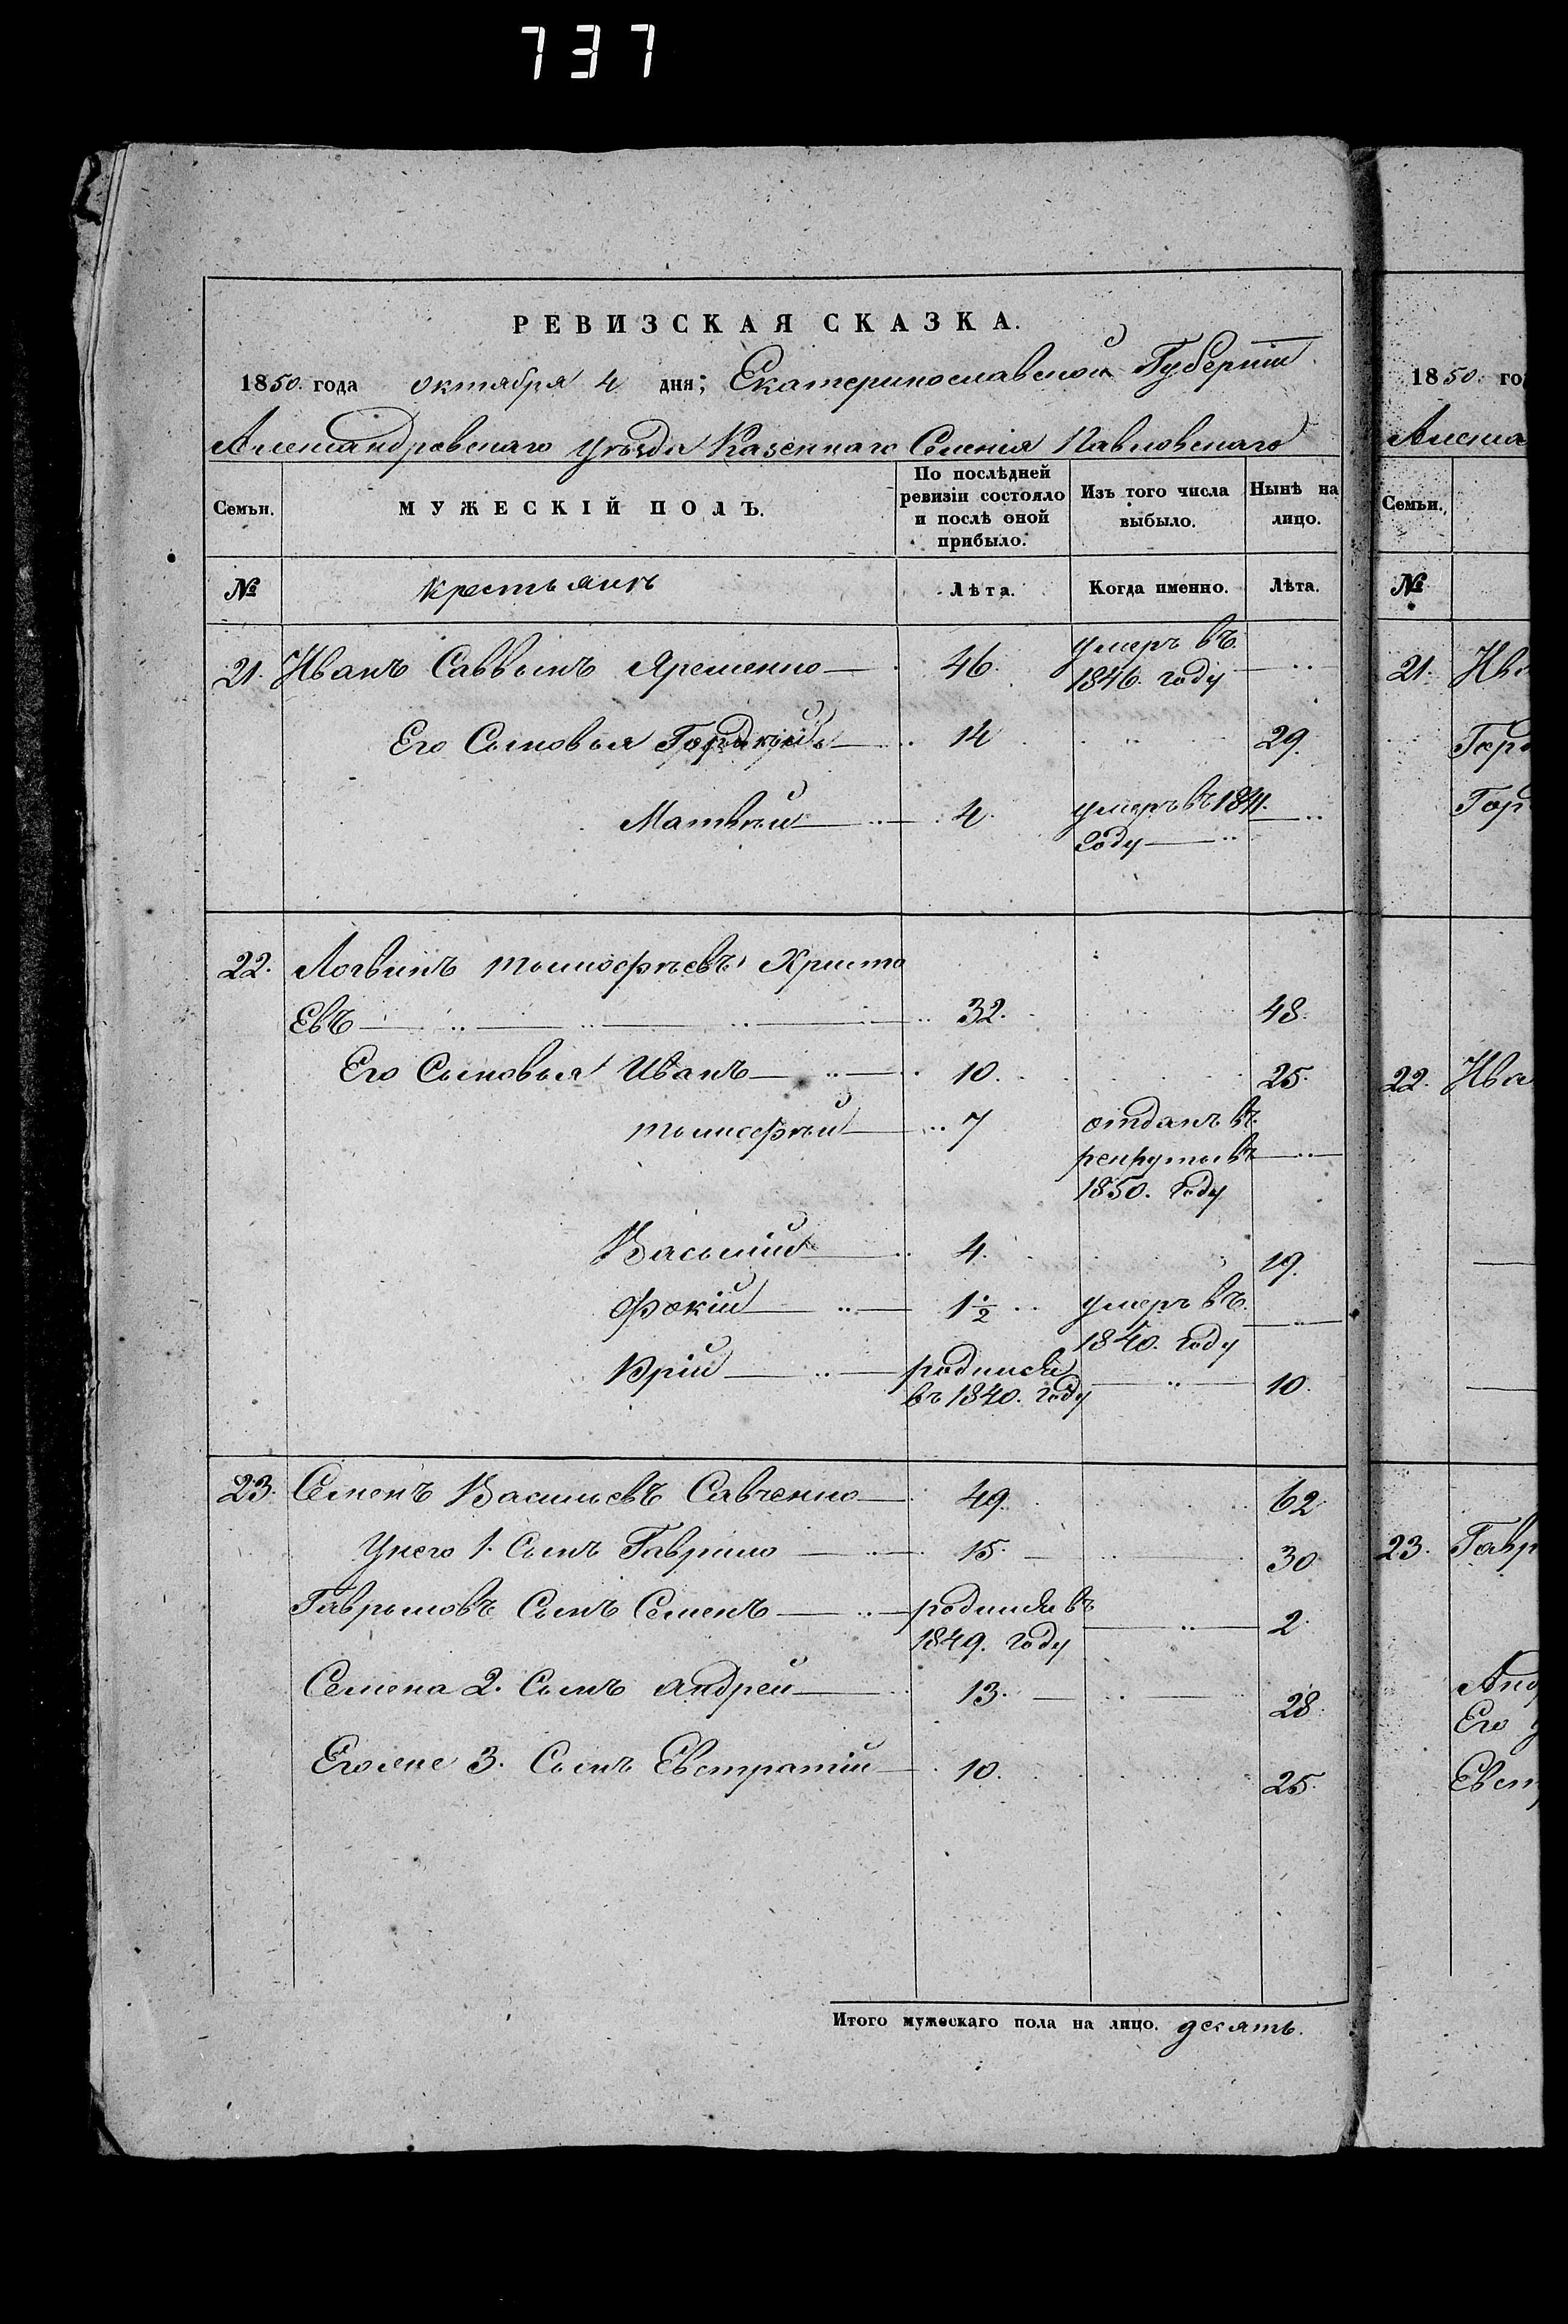 737
РЕВИЗСКАЯ СКАЗКА.
1850. года октября 4 дня; Екатеринославской Губерніи
Александровскаго уѣзда Казеннаго Селенія Павловскаго
Семьи. МУЖЕСКІЙ ПОЛЪ. По послѣдней ревизіи состояло и послѣ оной прибыло. Изъ того числа выбыло. Нынѣ на лицо.
№ крестьянъ Лѣта. Когда именно. Лѣта.
21. Иванъ Саввинъ Яременко 46. умеръ въ 1846. году
Его Сыновья 14 29.
Матвѣй 4 умеръ въ 1841. году
22. Логвинъ тымофѣевъ Христо
Евъ 32. 48.
Его Сыновья Иванъ 10. 25.
тымофѣй 7 отданъ въ рекруты въ 1850. году
Василій 4. 19.
Фокій 1 1/2 умеръ въ 1840. году
Юрій родился въ 1840. году 10.
23. Семенъ Васильевъ Савченко 49. 62
Унего 1. Сынъ Гаврило 15. 30
Гавриловъ Сынъ Семенъ родился въ 1849. году 2.
Семена 2. Сынъ андрей 13. 28.
Егоже 3. Сынъ Евстратій 10. 25.
Итого мужескаго пола на лицо. десять.
1850. го
Алекса
Семьи.
№
21. Ива
Гор
22. Ива
23. Гавр
Анд
Его
Евст